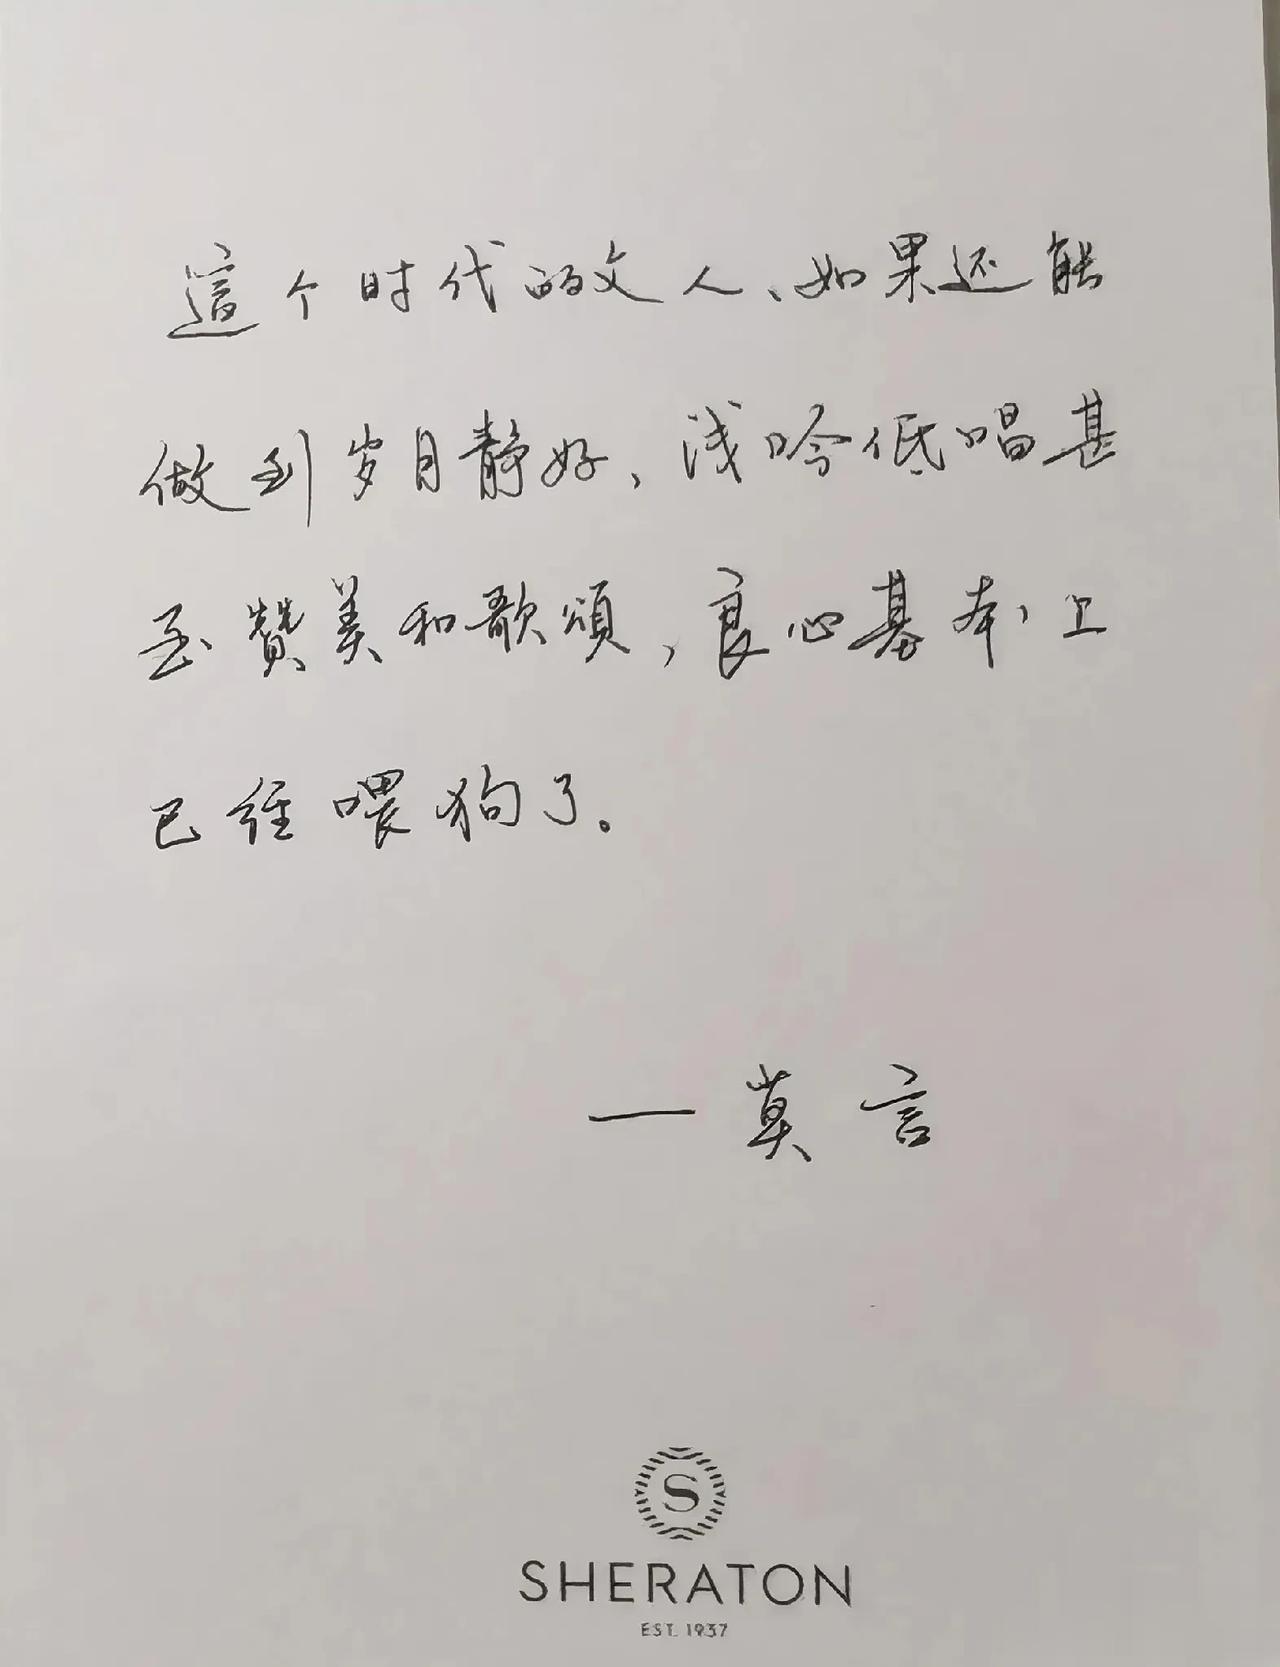 這个时代的文人、如果还能
做到岁月静好，浅吟低唱甚
至贊美和歌頌，良心基本上
已经喂狗了。
—莫言
S
SHERATON
EST. 1937